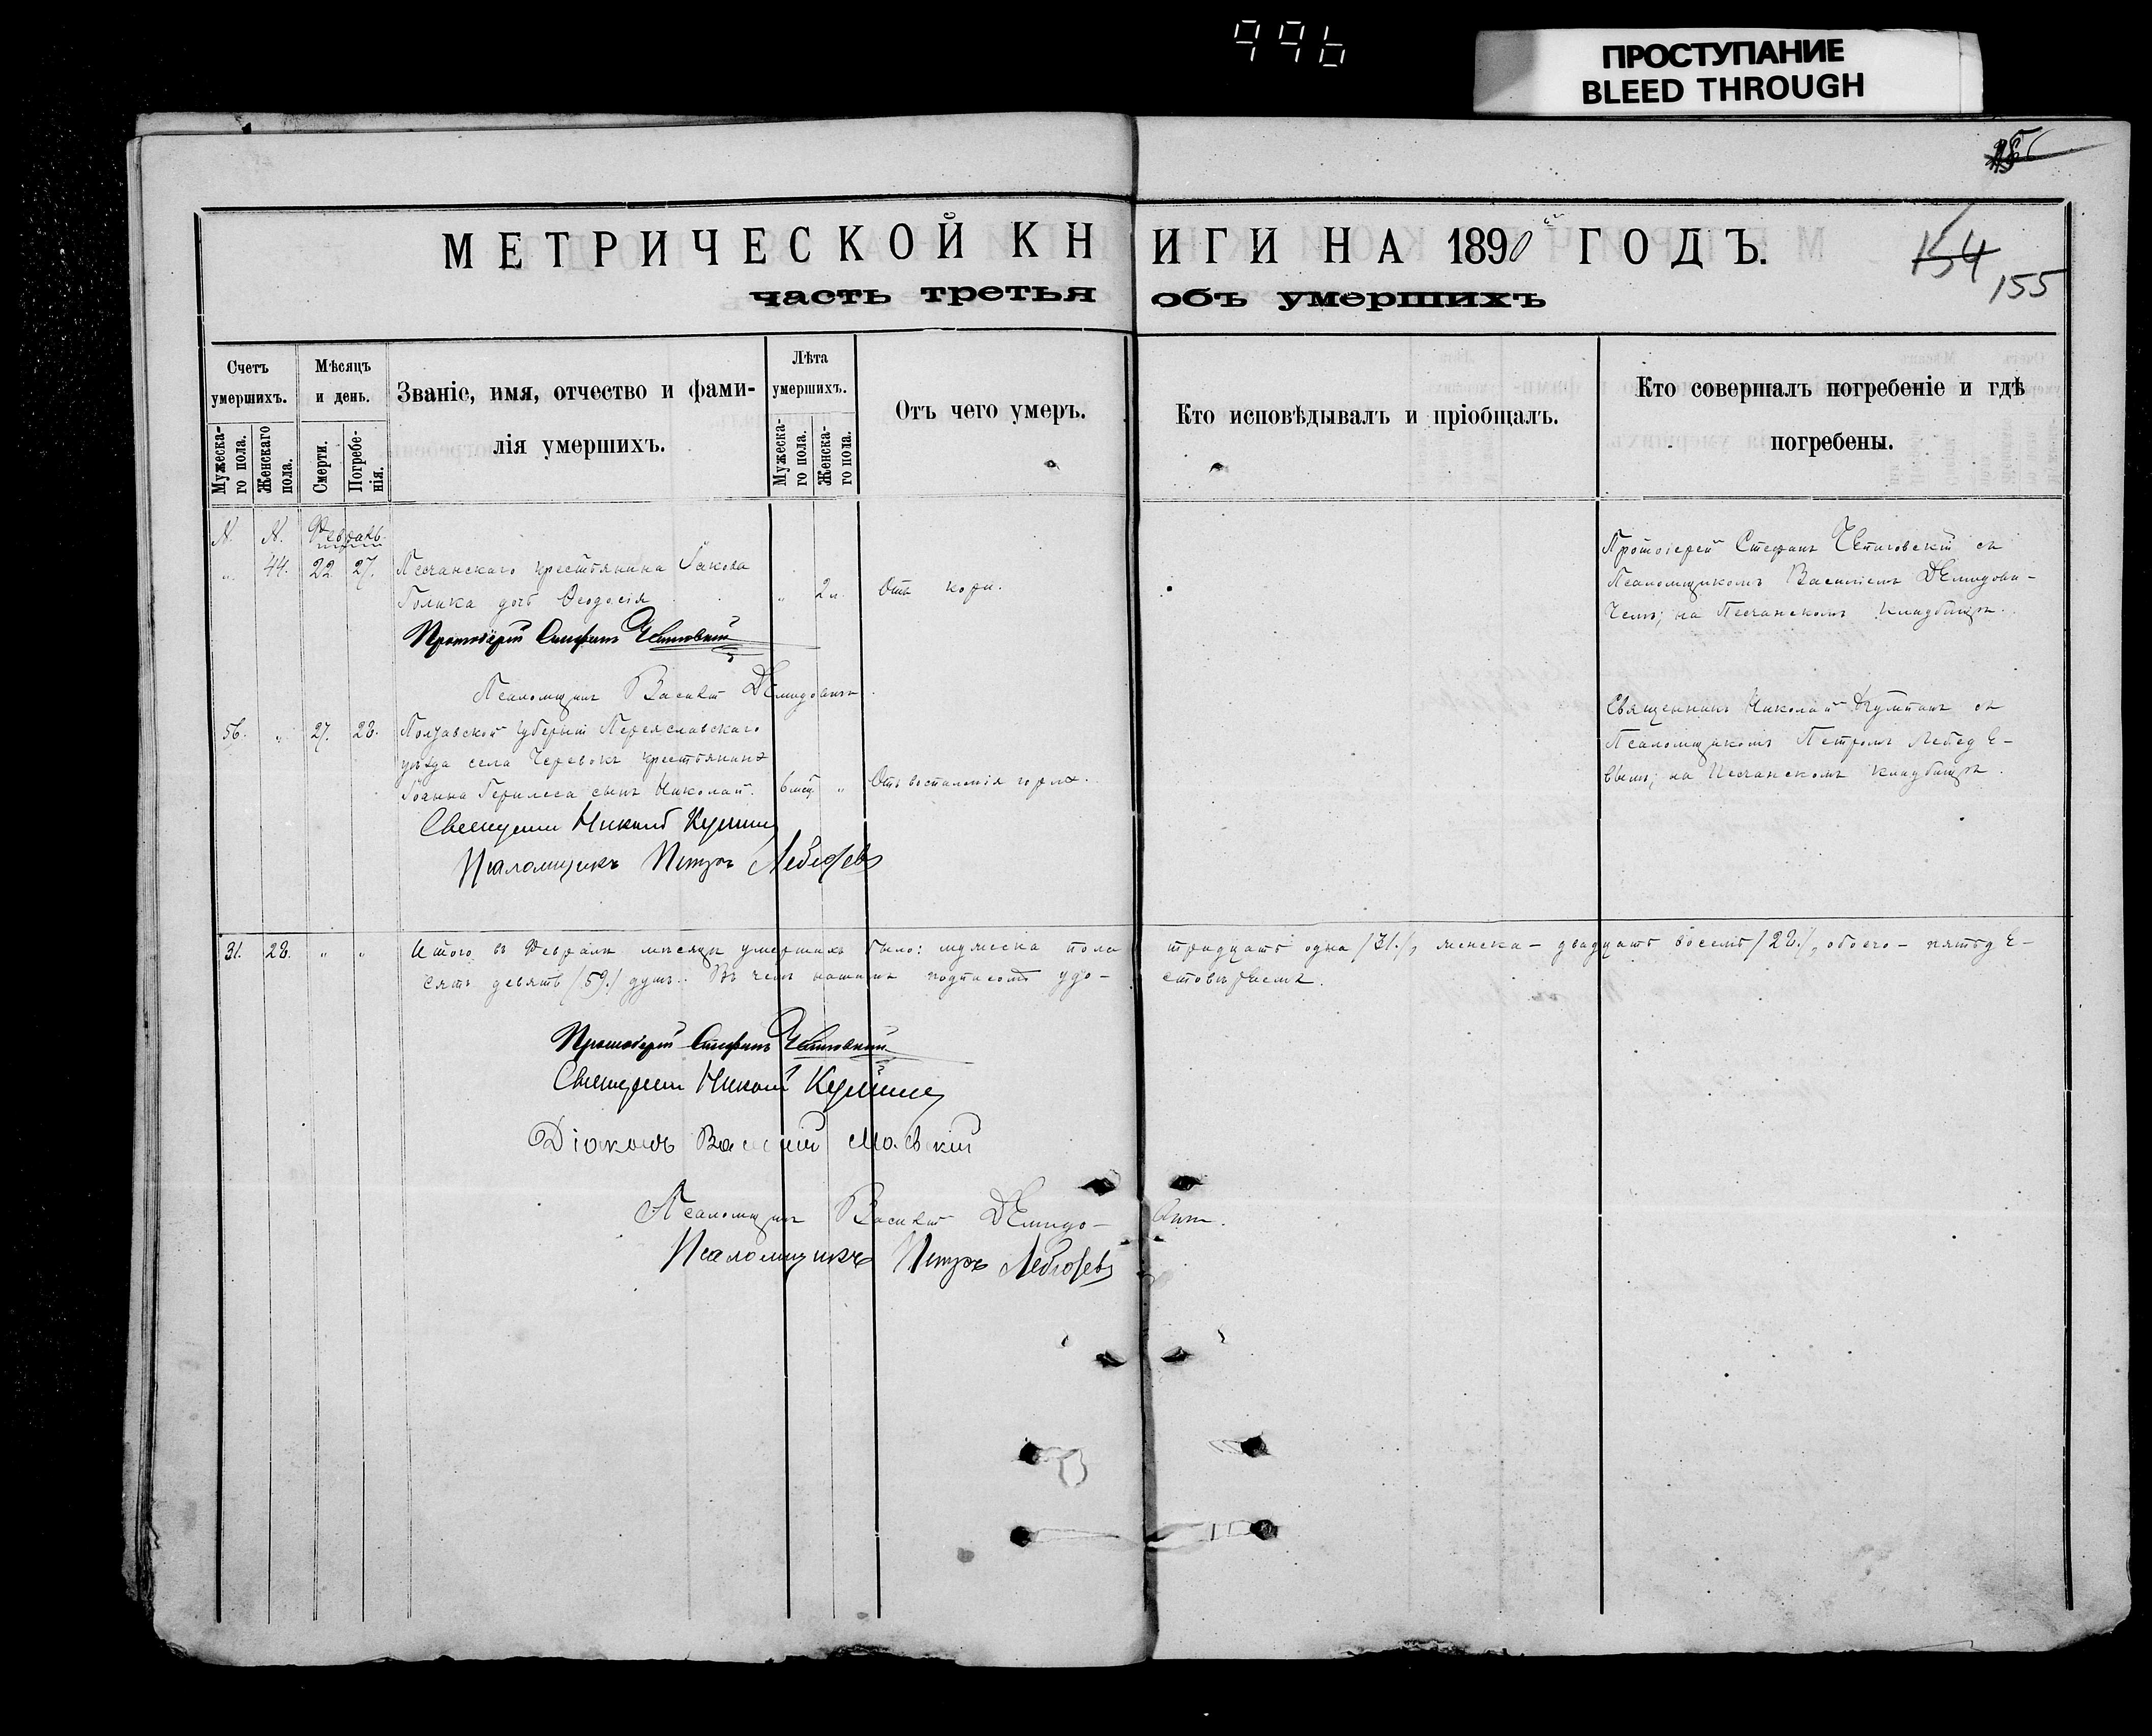 996
ПРОСТУПАНИЕ
BLEED THROUGH
МЕТРИЧЕСКОЙ КНИГИ НА 1890 ГОДЪ.
154
155
часть третья объ умершихъ
Счетъ умершихъ.
Мужескаго пола.
Женскаго пола.
Мѣсяцъ и день.
Смерти.
Погребенія.
Званіе, имя, отчество и фами-
лія умершихъ.
Лѣта умершихъ.
Мужескаго пола.
Женскаго пола.
Отъ чего умеръ.
Кто исповѣдывалъ и пріобщалъ.
Кто совершалъ погребеніе и гдѣ
погребены.
N. N. Февраль.
„ 44. 22. 27. Песчанскаго крестьянина Іакова
Голика дочь Ѳеодосія „ 2 л. Отъ кори.
Протоіерей Стефанъ
Псаломщикъ Василій Демидовичъ.
Протоіерей Стефанъ съ
Псаломщикомъ Василіемъ Демидови-
чемъ; на Песчанскомъ кладбищѣ.
56. „ 27. 28. Полтавской губерніи Переяславскаго
уѣзда села Черевокъ крестьянина
Іоанна сынъ Николай. 6 мѣс. „ Отъ воспаленія горла.
Священникъ Николай
Псаломщикъ Петръ Лебедевъ
Священникъ Николай съ
Псаломщикомъ Петромъ Лебеде-
вымъ; на Песчанскомъ кладбищѣ.
31. 28. „ „ Итого въ Февралѣ мѣсяцѣ умершихъ было: мужеска пола тридцать одна /31./, женска – двадцать восемь /28./, обоего – пятьде-
сять девять /59./ душъ. Въ чемъ нашимъ подписомъ удо-стовѣряемъ.
Протоіерей Стефанъ
Священникъ Николай
Діаконъ Василій
Псаломщикъ Василій Демидо-вичъ.
Псаломщикъ Петръ Лебедевъ